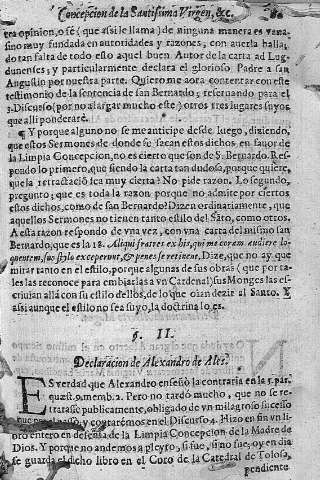 Concepcion de la Santissima Virgen, &c.
tra opinion, o se (que assi le llama) de ninguna manera es vana,
sino muy fundada en autoridades y razones, con averla halla-
do tan falta de todo esto aquel buen Autor de la carta ad Lug-
dunenses; y particularmente declara el glorioso Padre san
Augustin por nuestra parte. Quiero me aora contentar con este
testimonio de la sentencia de san Bernardo; reservando para el
3. Discurso (por no alargar mucho este) otros tres lugares suyos,
que alli ponderare.
¶ Y porque alguno no se me anticipe desde luego, diziendo,
que estos Sermones de donde se sacan estos dichos en favor de
la Limpia Concepcion, no es cierto que son de S. Bernardo. Res-
pondo lo primero, que siendo la carta tan dudosa, porque quiere,
que la retractaciõ sea muy cierta? No pide razon. Lo segundo,
pregunto; que es toda la razon porque no admite por ciertos
estos dichos, como de san Bernardo? Dizen ordinariamente, que
aquellos Sermones no tienen tanto estilo del Sãto, como otros.
A esta razon respondo de vna vez, con vna carta del mismo san
Bernardo, que es la 18. Aliqui fratres ex his, qui me coram audiere lo-
quentem, suo stylo exceperunt, & penes se retinent, Dize, que no ay que
mirar tanto en el estilo, porque algunas de sus obras (que por ta-
les las reconoce para embiarlas a vn Cardenal) sus Monges las es-
criuian allá con su estilo dellos, de lo que oian dezir al Santo. Y
assi aunque el estilo no sea suyo, la doctrina lo es.
§. II.
Declaracion de Alexandro de Ales.
ES verdad que Alexandro enseñò la contraria en la 3. par.
quæst. 9. memb. 2. Pero no tardó mucho, que no se re-
tratasse publicamente, obligado de vn milagroso sucesso
que passò, y contarèmos en el Discurso 4. Hizo en fin vn li-
bro entero en defensa de la Limpia Concepcion de la Madre de
Dios. Y porque no andemos a pleyto, si fue, si no fue, oy en dia
se guarda el dicho libro en el Coro de la Catedral de Tolosa,
pendiente